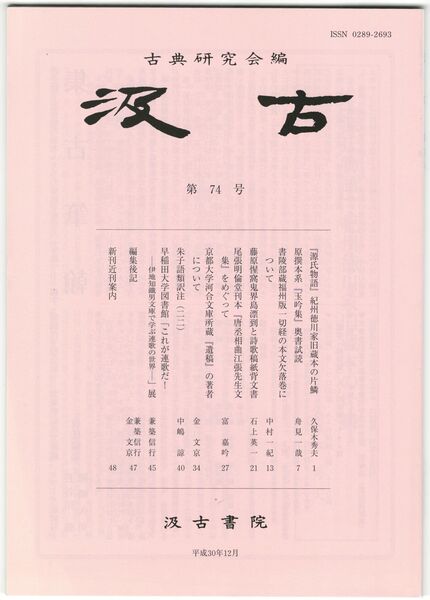 ISSN 0289-2693
古典研究会編
汲古
第 74 号
『源氏物語』紀州徳川家旧蔵本の片鱗 久保木秀夫 1
原撰本系『玉吟集』奥書試読 舟見一哉 7
書陵部蔵福州版一切経の本文欠落巻に
ついて 中村一紀 13
藤原惺窩鬼界島漂到と詩歌稿紙背文書 石上英一 21
尾張明倫堂刊本『唐丞相曲江張先生文
集』をめぐって 富嘉吟 27
京都大学河合文庫所蔵『遺稿』の著者
について 金文京 34
朱子語類訳注(二二) 中嶋諒 40
早稲田大学図書館「これが連歌だ!
―伊地知鐵男文庫で学ぶ連歌の世界―」展 兼築信行 45
編集後記 兼築信行 金文京 47
新刊近刊案内 48
汲古書院
平成30年12月